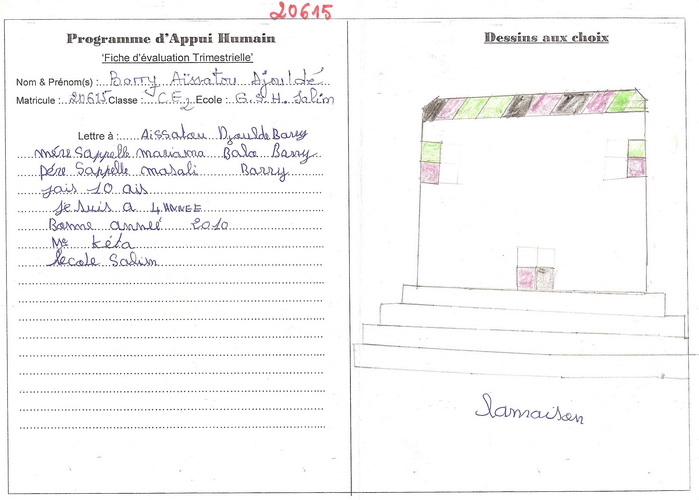 20615
Programme d'Appui Humain
'Fiche d'évaluation Trimestrielle'
Nom & Prénom(s) : Barry Aïssatou Djouldé
Matricule : 20615 Classe : CE2 Ecole : G.S.H. Salim
Lettre à : Aissatou Djoulde Barry
mère Sappelle mariama Balo Barry
père Sappelle masali Barry
jais 10 ais
je suis a 4 ANNEE
Bonne anneé 2010
Me kéta
lecole Salim
Dessins aux choix
lamaison